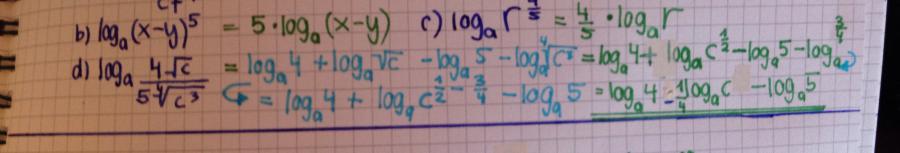 b) logₐ(x-y)⁵ = 5·logₐ(x-y) c) logₐ r^(4/5) = 4/5 · logₐ r
d) logₐ (4√c)/(5 ⁴√c³) = logₐ 4 + logₐ √c - logₐ 5 - logₐ ⁴√c³ = logₐ 4 + logₐ c^(1/2) - logₐ 5 - logₐ c^(3/4)
↪ = logₐ 4 + logₐ c^(1/2 - 3/4) - logₐ 5 = logₐ 4 - 1/4 logₐ c - logₐ 5